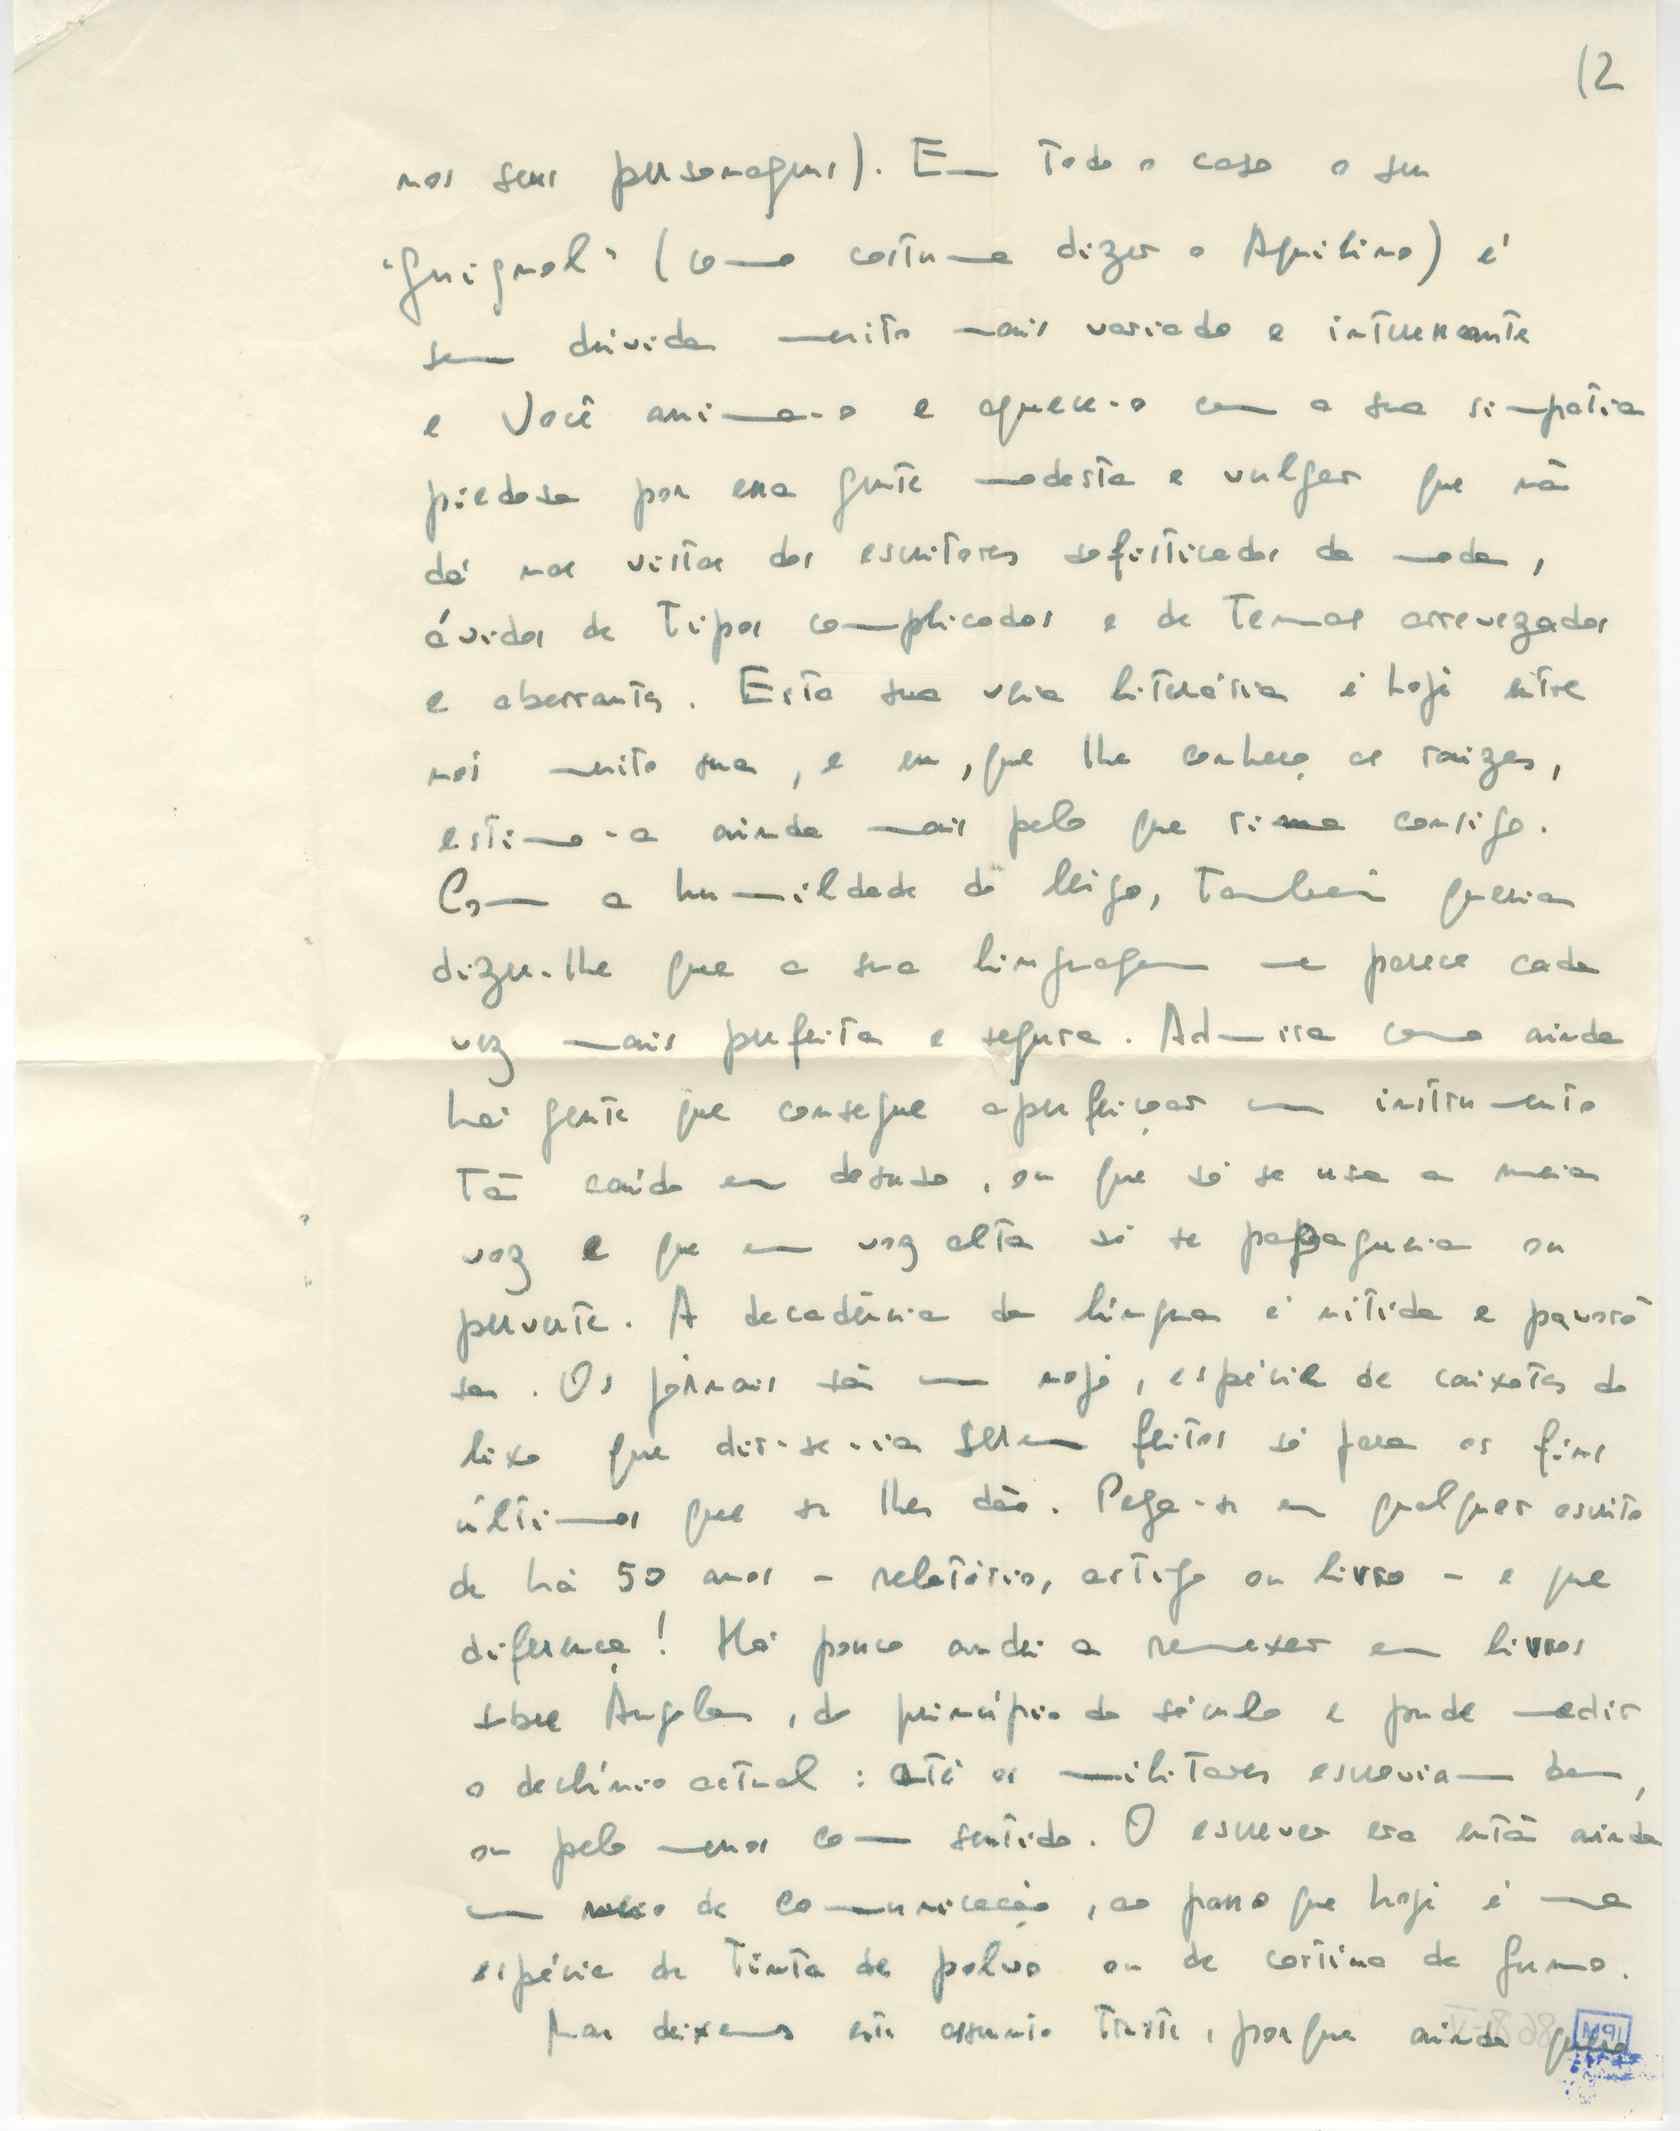 (2
nos seus personagens). Em todo o caso o seu
"Guignol" (como costuma dizer o Aquilino) é
sem dúvida muito mais variado e interessante
e Você anima-o e aquece-o com a sua simpatia
piedosa por essa gente modesta e vulgar que não
dá nas vistas dos escritores sofisticados da moda,
ávidos de tipos complicados e de temas arrevezados
e aberrantes. Esta sua veia literária é hoje entre
nós muito sua, e eu, que lhe conheço as raizes,
estimo-a ainda mais pelo que rima consigo.
Com a humildade do leigo, também queria
dizer-lhe que a sua linguagem me parece cada
vez mais perfeita e segura. Admira como ainda
há gente que consegue aperfeiçoar um instrumento
tão caído em desuso, ou que só se usa a meia
voz e que em voz alta só se papagueia ou
perverte. A decadência da língua é nítida e pavoro
sa. Os jornais são um nojo, espécie de caixotes do
lixo que dir-se-ia serem feitos só para os fins
últimos que se lhes dão. Pega-se em qualquer escrito
de há 50 anos - relatório, artigo ou livro - e que
diferença! Há pouco andei a remexer em livros
sobre Angola, do princípio do século e pude medir
o declínio actual: até os militares escreviam bem,
ou pelo menos com sentido. O escrever era então ainda
um meio de comunicação, ao passo que hoje é uma
espécie de tinta de polvo ou de cortina de fumo.
Mas deixemos este assunto triste, porque ainda quero
IPM